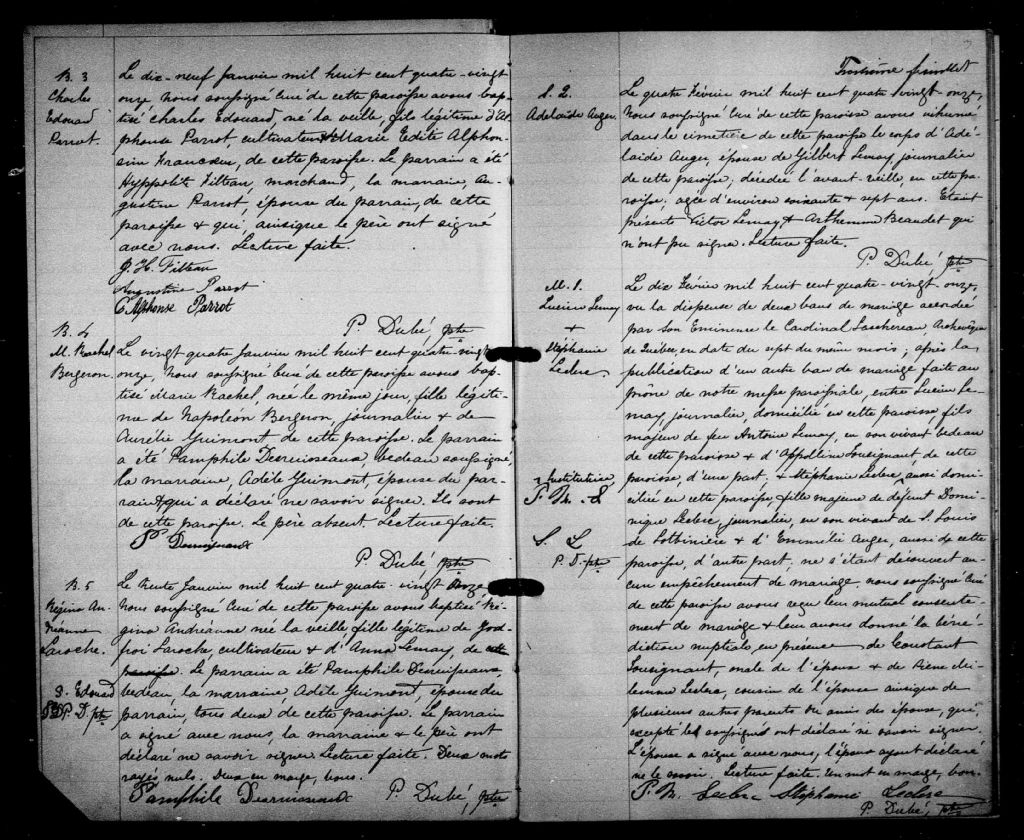 B. 3
Charles
Edouard
Parrot.
Le dix-neuf Janvier mil huit cent quatre-vingt
onze, Nous soussigné Curé de cette paroisse avons bap-
tisé Charles Edouard, né la veille, fils légitime d'Al-
phonse Parrot, cultivateur & Marie Edite Alphon-
sin Francoeur, de cette paroisse. Le parrain a été
Hyppolite Filteau, marchand, la marraine, Au-
gustine Parrot, épouse du parrain, de cette
paroisse & qui, ainsique le père ont signé
avec nous. Lecture faite.
J. H. Filteau
Augustine Parrot
C Alphonse Parrot
P. Dubé, ptre
B. 4
M. Rachel
Bergeron.
Le vingt quatre Janvier mil huit cent quatre vingt
onze, Nous soussigné Curé de cette paroisse avons bap-
tisé Marie Rachel, née le même jour, fille légiti-
me de Napoléon Bergeron, journalier & de
Aurélie Guimont de cette paroisse. Le parrain
a été Pamphile Desruisseaux, bedeau soussigné,
la marraine, Adèle Guimont, épouse du par-
rain & qui a déclaré ne savoir signer. Ils sont
de cette paroisse. Le père absent Lecture faite.
P Desruisseaux
P. Dubé, ptre
B. 5
Régina An-
dréanne
Laroche.
Le trente Janvier mil huit cent quatre-vingt onze
Nous soussigné Curé de cette paroisse avons baptisé Ré-
gina Andréanne née la veille, fille légitime de God-
froi Laroche, cultivateur & d'Anna Lemay, de cette
paroisse. Le parrain a été Pamphile Desruisseaux,
bedeau, la marraine Adèle Guimont, épouse du
parrain, tous deux de cette paroisse. Le parrain
a signé avec nous, la marraine & le père ont
déclaré ne savoir signer. Lecture faite. Deux mots
rayés nuls. Deux en marge, bons.
S. Edouard
P. D. ptre
Pamphile Desruisseaux P. Dubé, ptre
Troisième feuillet
S. 2.
Adelaide Auger.
Le quatre Février mil huit cent quatre vingt-onze,
Nous soussigné Curé de cette paroisse avons inhumé
dans le cimetière de cette paroisse le corps d'Adé-
laide Auger, épouse de Gilbert Lemay, journalier
de cette paroisse; décédée l'avant-veille, en cette pa-
roisse; agée d'environ soixante & sept ans. Etaient
présents Victor Lemay & Arthemon Beaudet qui
n'ont pu signer. Lecture faite.
P. Dubé, ptre
M. 1.
Lucien Lemay
&
Stéphanie
Leclerc.
Le dix Février mil huit cent quatre-vingt-onze,
vu la dispense de deux bans de mariage accordée
par Son Eminence le Cardinal Taschereau Archevêque
de Québec, en date du sept du même mois; après la
publication d'un autre ban de mariage faite au
prône de notre messe paroissiale, entre Lucien Le-
may, journalier, domicilié en cette paroisse, fils
majeur de feu Antoine Lemay, en son vivant bedeau
de cette paroisse & d'Appolline Tousignant de cette
paroisse, d'une part; & Stéphanie Leclerc, aussi domi-
ciliée en cette paroisse, fille majeure de défunt Domi-
nique Leclerc, journalier, en son vivant de S. Louis
de Lotbinière & d'Emmélie Auger, aussi de cette
paroisse, d'autre part; ne s'étant découvert au-
cun empêchement de mariage, nous soussigné Curé
de cette paroisse avons reçu leur mutuel consente-
ment de mariage & leur avons donné la béné-
diction nuptiale en présence de Constant
Tousignant, oncle de l'époux & de Pierre
Leclerc, cousin de l'épouse ainsique de
plusieurs autres parents ou amis des époux, qui,
excepté les soussignés ont déclaré ne savoir signer.
L'épouse a signé avec nous, l'époux ayant déclaré
ne le savoir. Lecture faite. Un mot en marge, bon.
Institutrice
P. M. L
S. L
P. D. ptre
P. M. Leclerc Stéphanie Leclerc
P. Dubé, ptre